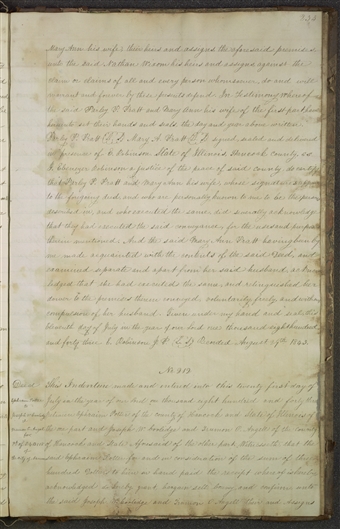 Mary Ann his wife their heirs and assigns the aforesaid premises
unto the said Nathan his heirs and assigns against the
claim or claims of all and every person whomsoever do and will
warrant and forever by these presents defend. In Testimony whereof
the said Parley P. Pratt and Mary Ann his wife, of the first part have
hereunto set their hands and seals the day and year above written
Parley P. Pratt Mary A. Pratt signed, sealed and delivered
in presence of E. Robinson. State of Illinois, Hancock county, ss
I, Ebenezer Robinson a justice of the peace of said county, do certify
that Parley P. Pratt and Mary Ann his wife, whose signatures
to the foregoing deed, and who are personally known to me to be the persons
described in, and who executed the same, did severally acknowledge
that they had executed the said conveyance for the uses and purposes
therein mentioned. And the said Mary Ann Pratt having been by
me made acquainted with the contents of the said deed, and
examined separate and apart from her said husband, acknow-
ledged that she had executed the same, and relinquished her
dower to the premises therein conveyed, voluntarily freely and without
compulsion of her husband. Given under my hand and seal this
day of July in the year of our Lord one thousand eight hundred
and forty three. E. Robinson J. P. Recorded August 19th 1843.
No 213
Deed This Indenture made and entered into this twenty first day of
July in the year of our Lord one thousand eight hundred and forty
between Ephraim Potter of the county of Hancock and State of Illinois of
the one part and Joseph and of the County
of Hancock and State aforesaid of the other part, Witnesseth that the
said Ephraim Potter for and in consideration of the sum of
hundred Dollars to him in hand paid the receipt whereof is hereby
acknowledged do hereby grant bargain sell convey and confirm unto
the said Joseph and their heirs and assigns